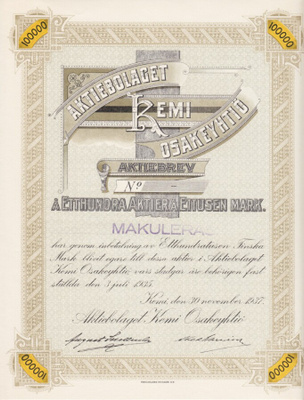 100000
100000
AKTIEBOLAGET
KEMI
OSAKEYHTIÖ
AKTIEBREV
No
Å ETTHUNDRA AKTIER À ETTUSEN MARK.
MAKULERAS
har genom inbetalning av Etthundratusen Finska
Mark blivit egare till dessa aktier i Aktiebolaget
Kemi Osakeyhtiö, vars stadgar äro behörigen fast
ställda den 5 juli 1935.
Kemi, den 30 november 1937.
Aktiebolaget Kemi Osakeyhtiö
100000
100000